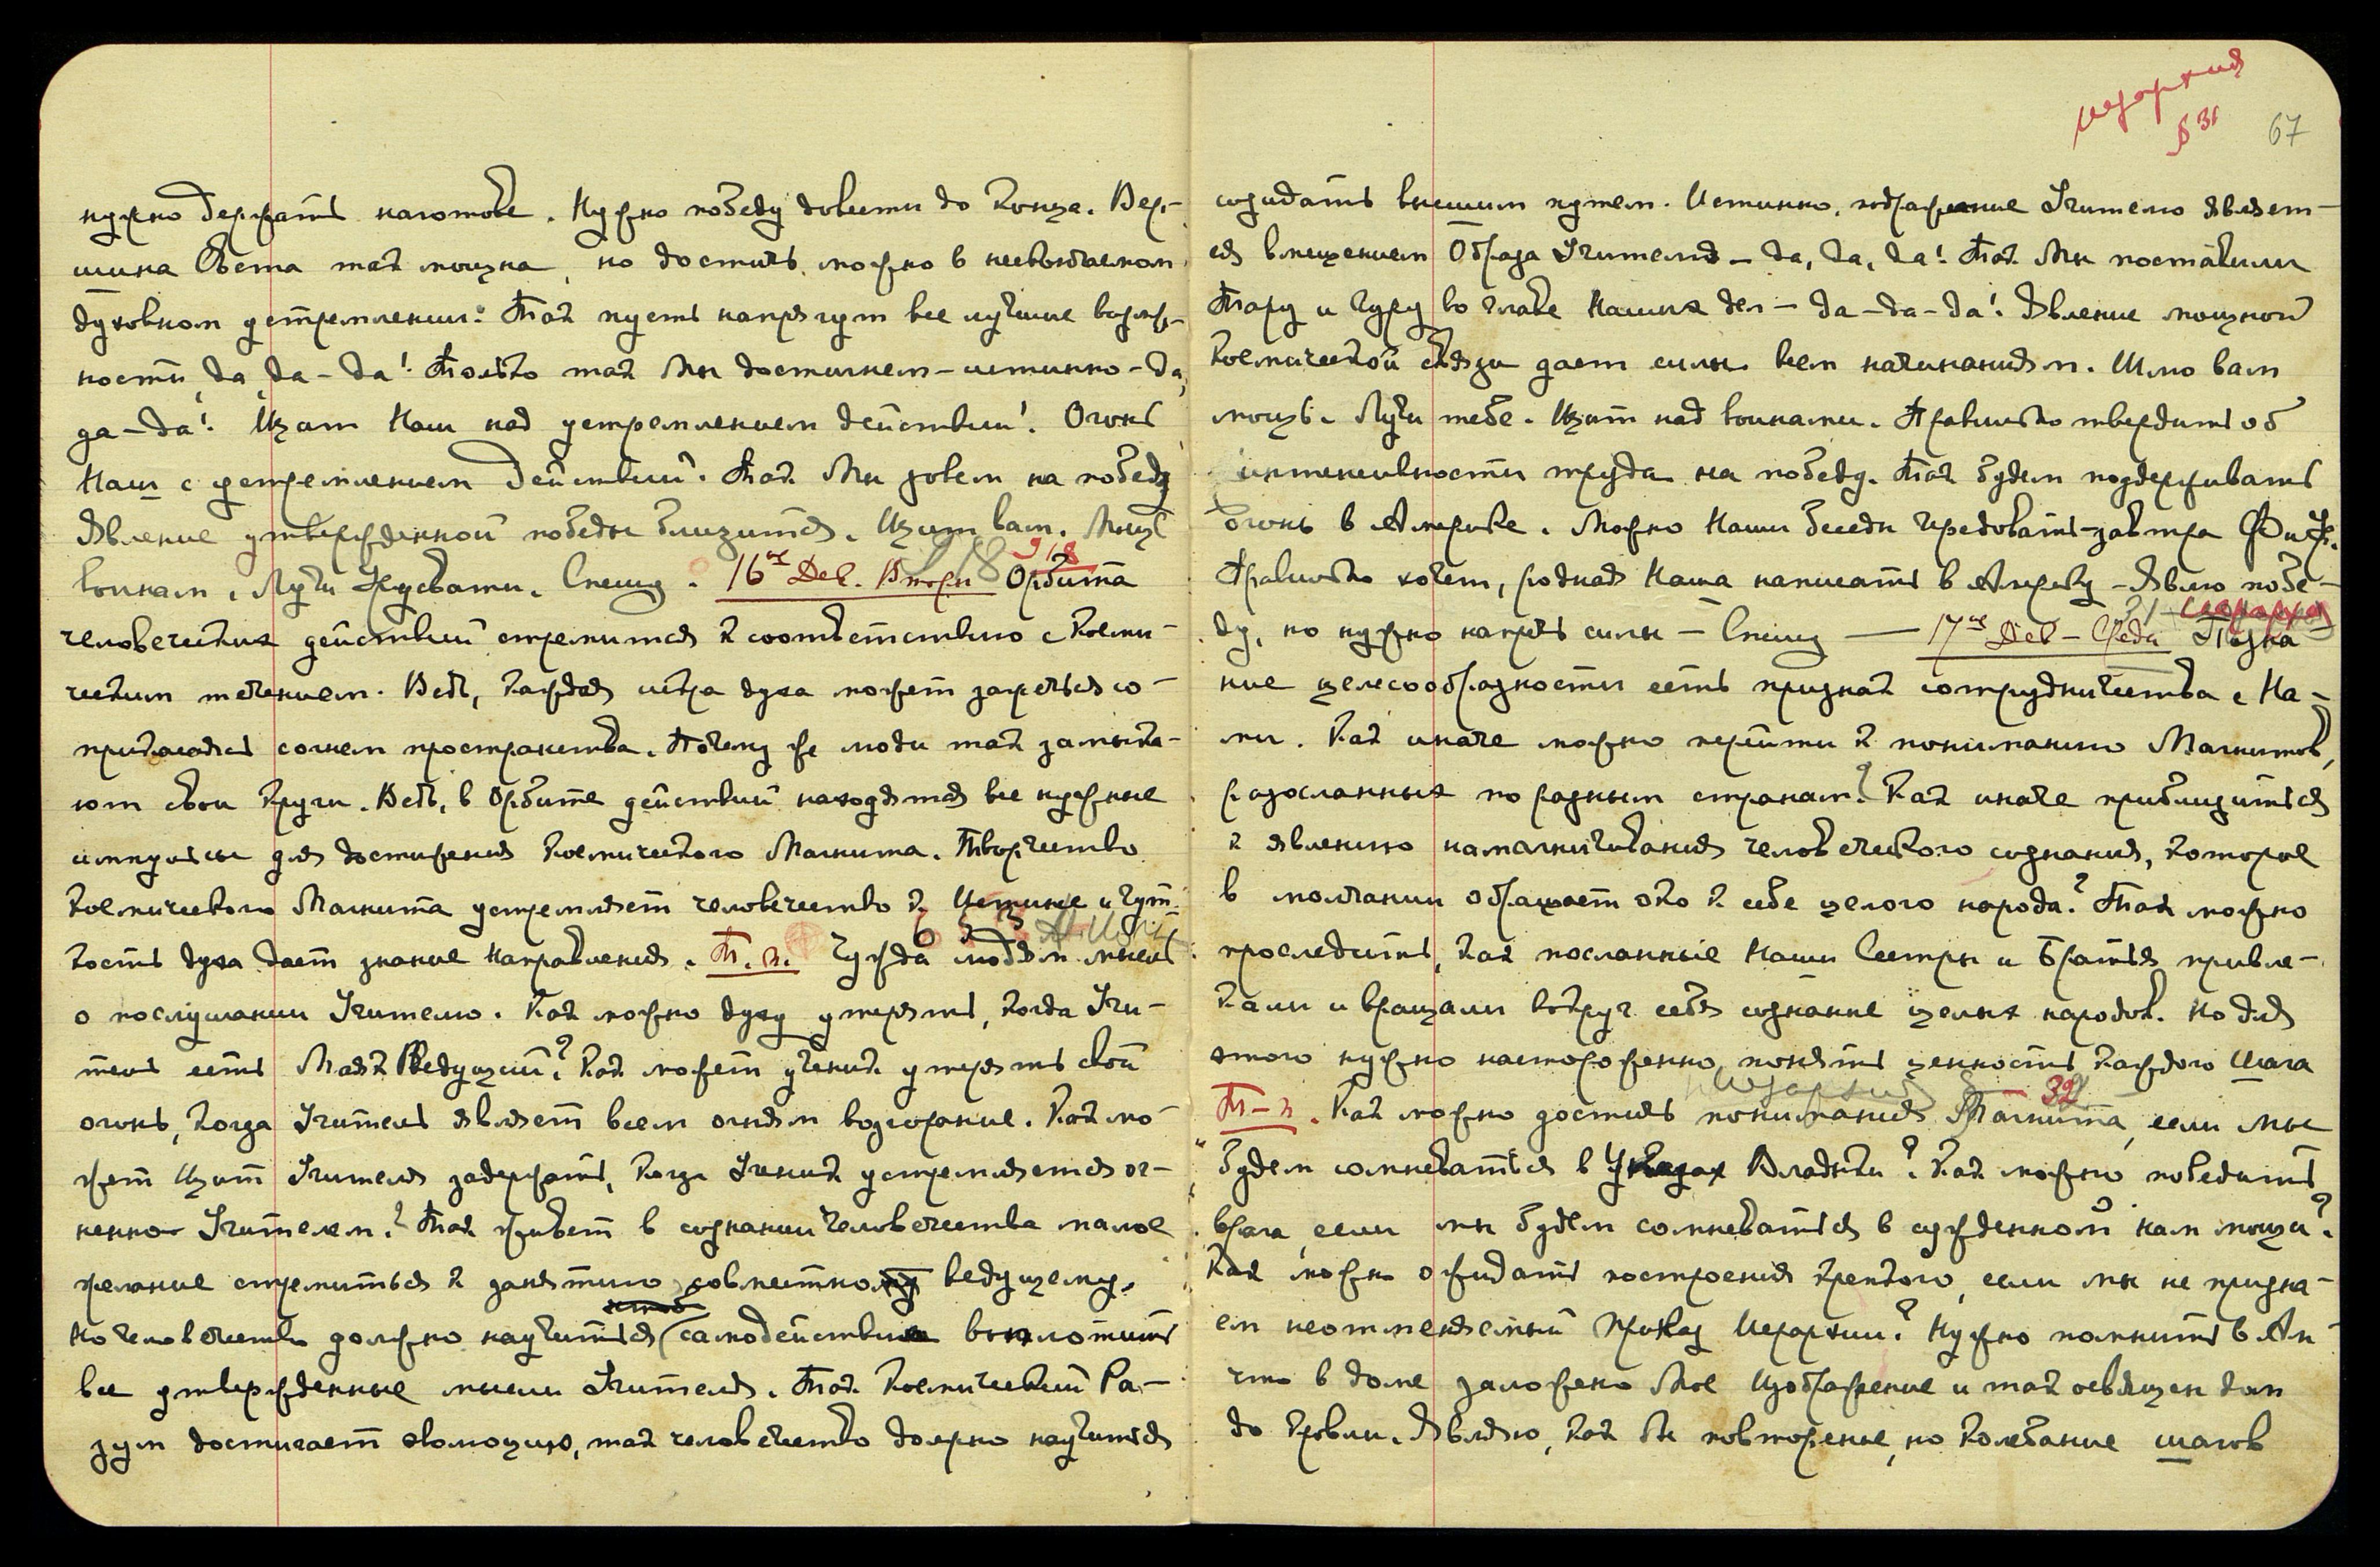 нужно держать наготове. Нужно победу довести до конца. Вер-
шина Света так мощна, но достичь можно в несвязаемом
духовном устремлении. Так пусть напрягут все лучшие возмож-
ности, да, да-да! Только так Мы достигнем-истинно-да,
да-да! Щит Наш над устремлением действий! Огонь
Наш с устремлением действий. Так Мы зовем на победу
Явление утвержденной победы близится. Щит вам. Мощь
воинам. Лучи Урусвати. Спешу. 16е Дек. Вторн 918 Орбита
человеческих действий стремится к соответствию с косми-
ческим течением. Ведь, каждая искра духа может зажечься со-
прикасаясь солнем пространства. Почему же люди так замыка-
ют свои круги. Ведь, в Орбите действий находятся все нужные
импульсы для достижения космического Магнита. Творчество
космического Магнита устремляет человечество к Истине и чут-
кость духа дает знание направления. Т.л. Чужда людям мысль
о послушании Учителю. Как можно духу утерять, когда Учи-
тель есть Маяк Ведущий? Как может ученик утерять свой
огонь, когда Учитель являет всем огням возгорание. Как мо-
жет Щит Учителя задержать, когда Ученик устремляется ог-
ненно Учителем? Так живет в сознании человечества малое
желание стремиться к занятию совместному ведущему.
Но человечество должно научиться самодействием воплотить
все утвержденные мысли Учителя. Так Космический Ра-
зум достигает эволюцию, так человечество должно научиться
Иерархия
§ 31
67
созидать высшим путем. Истинно, подражание Учителю являет-
ся вмещением Образа Учителя - да, да, да! Так Мы поставили
Тару и Гуру во главе Наших дел - да-да-да! Явление мощной
космической связи дает силы всем начинаниям. Шлю вам
мощь. Лучи тебе. Щит над воинами. Правильно твердить об
интенсивности труда на победу. Так будем поддерживать
огонь в Америке. Можно Наши беседы чередовать-завтра
Правильно хочет, родная Наша написать в Америку - Явлю побе-
ду, но нужно напрячь силы - Спешу — 17е Дек - Среда 31 Позна-
ние целесообразности есть признак сотрудничества с На-
ми. Как иначе можно перейти к пониманию Магнитов,
разосланных по разным странам? Как иначе приблизиться
к явлению намагничивания человеческого сознания, которое
в молчании обращает око к себе целого народа? Так можно
проследить, как посланные Наши Сестры и Братья привле-
кали и вращали вокруг себя сознание целых народов. Но для
этого нужно настороженно понять ценность каждого Шага
Иерархия 32
Т-л. Как можно достичь понимания Магнита, если мы
будем сомневаться в Указах Владыки? Как можно победить
врага, если мы будем сомневаться в сужденной нам мощи?
Как можно ожидать построения крепкого, если мы не призна-
ем неотменяемый приказ Иерархии? Нужно помнить в Ам
что в доме заложено Мое Изображение и так освящен дом
до кровли. Являю, как бы повторение, но колебание шагов